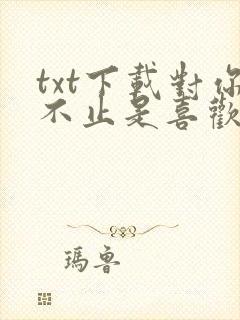 txt下載對你
不止是喜歡
瑪魯